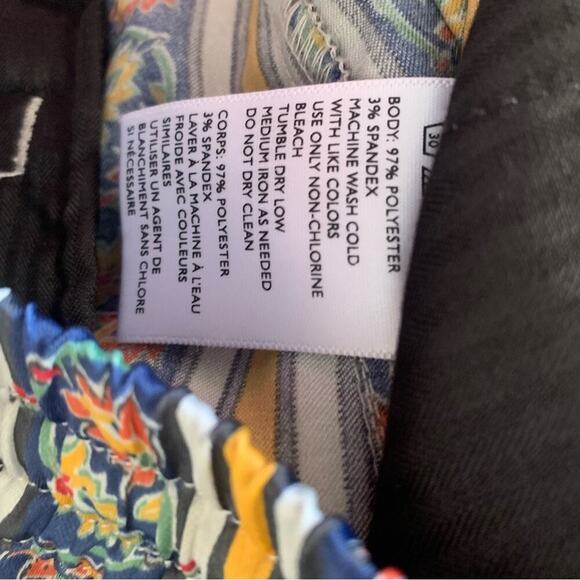 30
BODY: 97% POLYESTER
3% SPANDEX
MACHINE WASH COLD
WITH LIKE COLORS
USE ONLY NON-CHLORINE
BLEACH
TUMBLE DRY LOW
MEDIUM IRON AS NEEDED
DO NOT DRY CLEAN
CORPS: 97% POLYESTER
3% SPANDEX
LAVER À LA MACHINE À L'EAU
FROIDE AVEC COULEURS
SIMILAIRES
UTILISER UN AGENT DE
BLANCHIMENT SANS CHLORE
SI NÉCESSAIRE